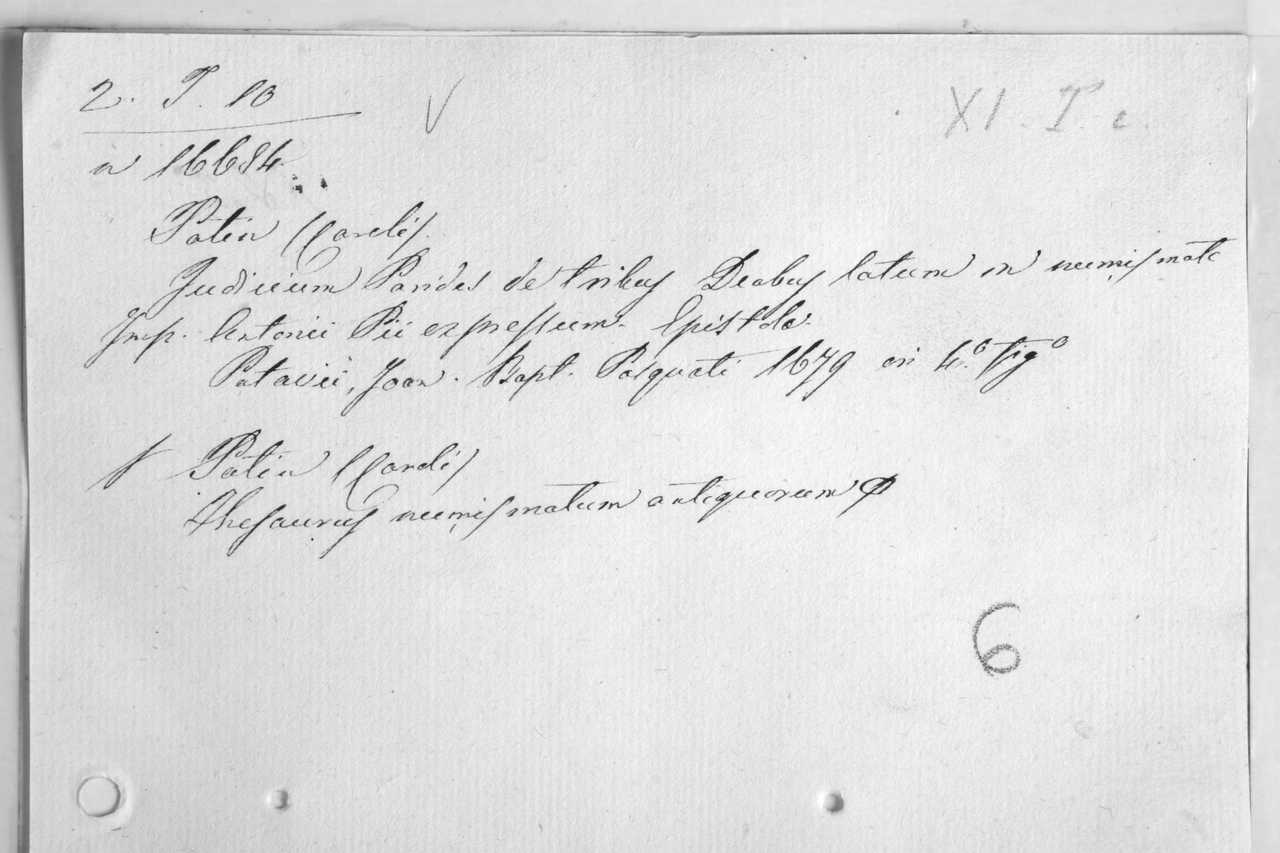 2. T. 10
V
XI. T. c.
n 16684.
Patin (Carlé).
Judicium Paridis de tribus Deabus latum in numismate
Imp. Antonii Pii expressum. Epistola.
Patavii, Joan. Bapt. Pasquati 1679 in 4.º figº
f Patin (Carlé)
Thesaurus numismatum antiquorum
6